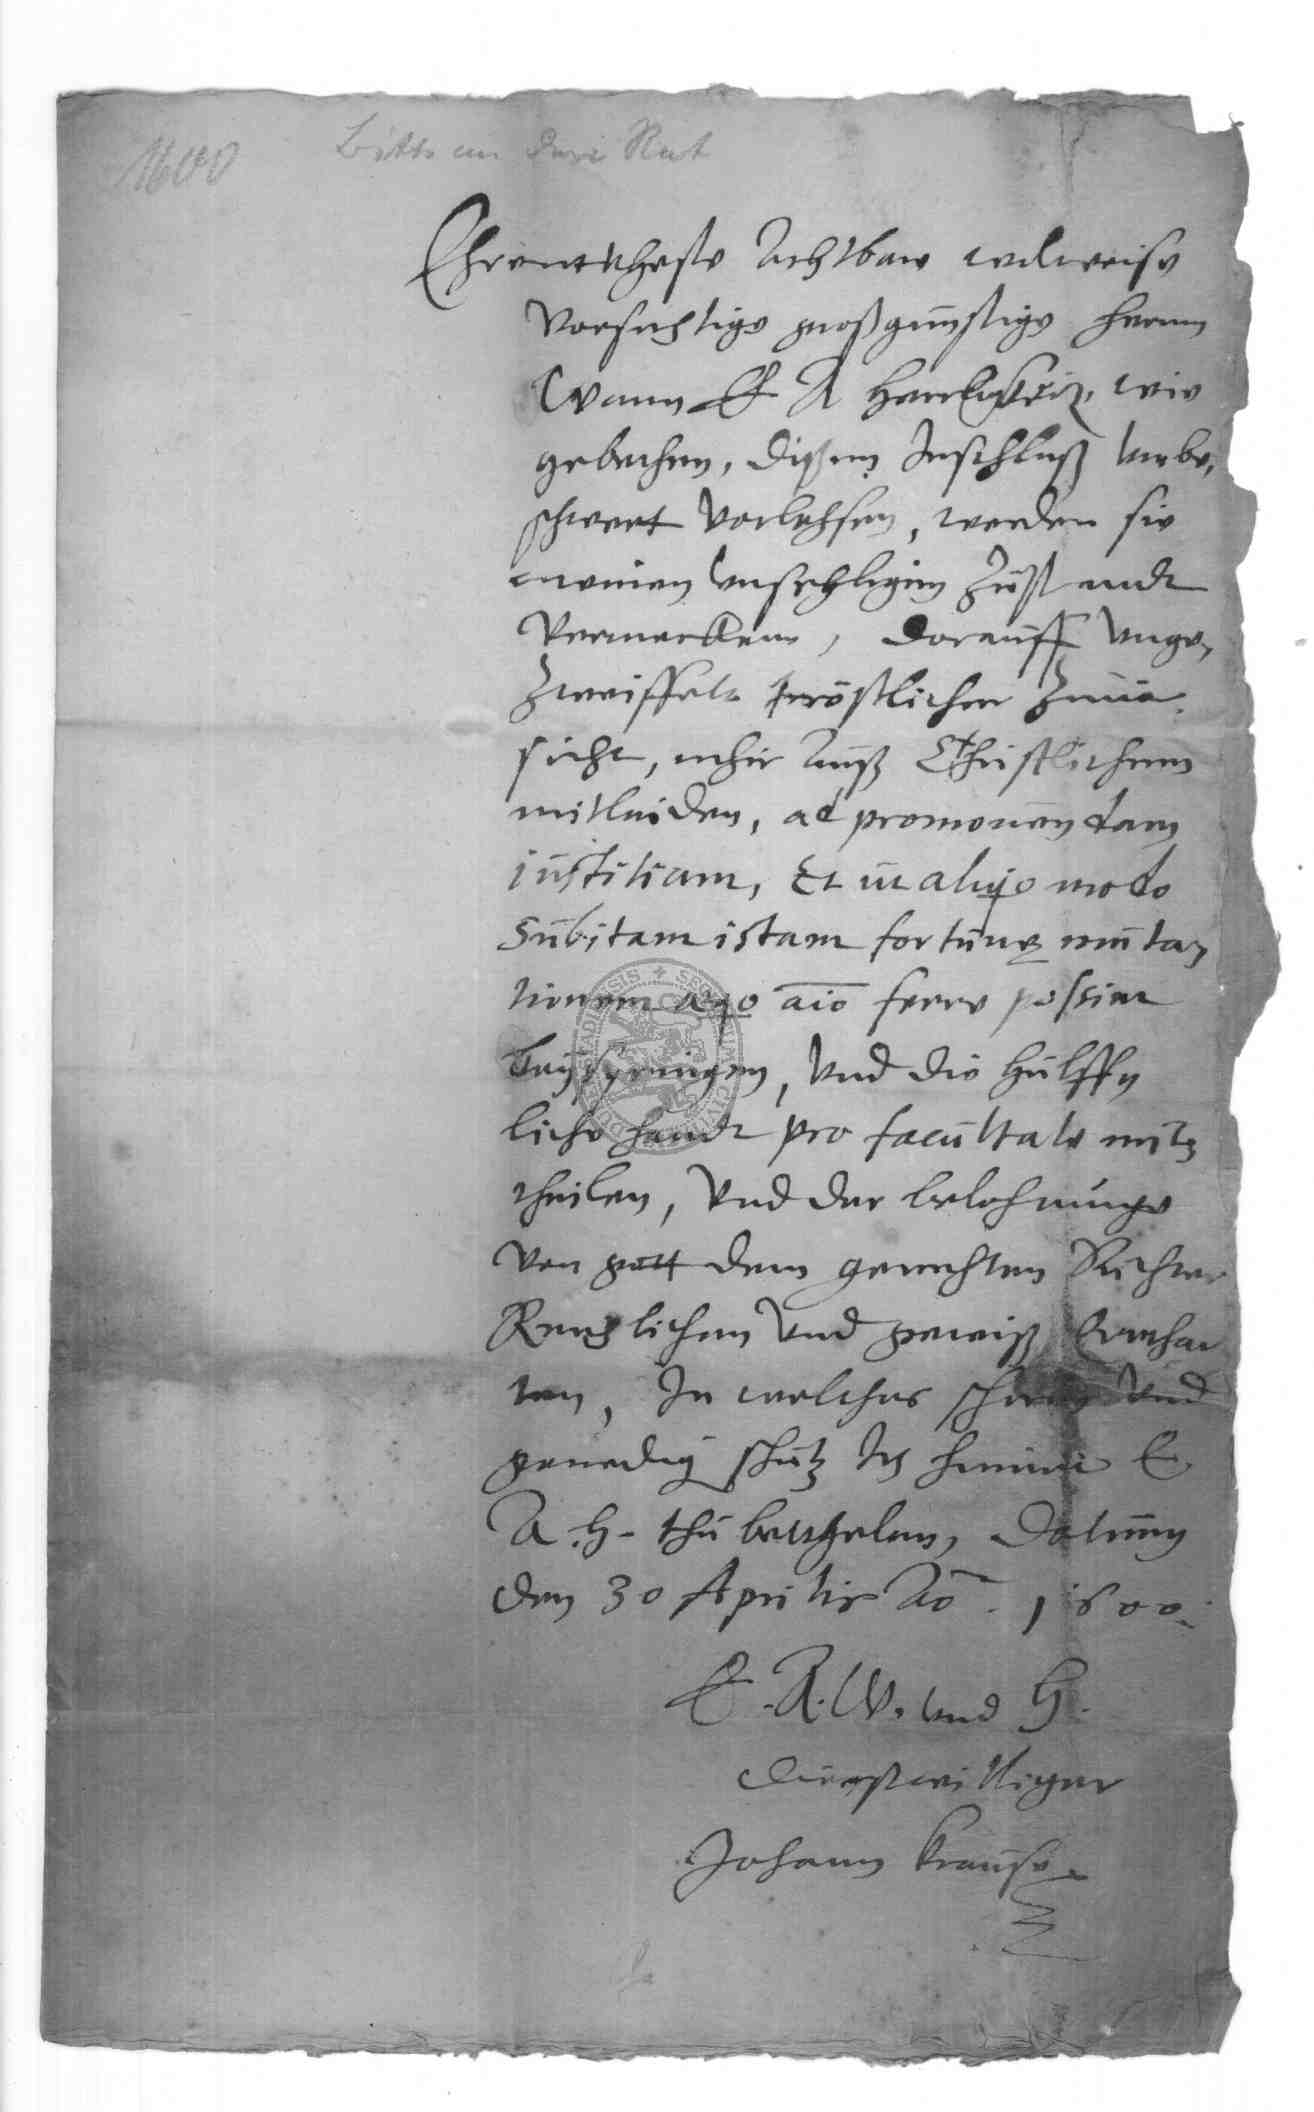 1600 Bitte an den Rat
Ehrentvheste Achtbare wolweise
Vorsichtige großgünstige herrnn
Wann E A Herrligkeitt, wie
gebethen, dißenn Inschluß vnbe,
schwert vorlehsen, werden sie
meinen vnsehligen Zustandt
Vermercken, dorauff vnge,
Zweiffelt tröstlicher Zuuor
sicht, mihr auß Christlichenn
mitleiden, ad promouendam
justitiam, Et ut aliquo modo
subitam istam fortunę muta,
tionem aequo aīo ferre possim
beyspringen, Vnd die hülffy
liche handt pro facultate mitt
theilen, Vnd der belohnunge
Von gott dem gerechten Richter
Reichlichen Vnd gewiß Erwar
ten, In welches Vnd
genedig schutz Ich hirmit E.
A. H. thu bevhelen, Datum
den 30 Aprilis Aō. 1600.
E. A. W. vnd H.
dienstwilliger
Johann Krause